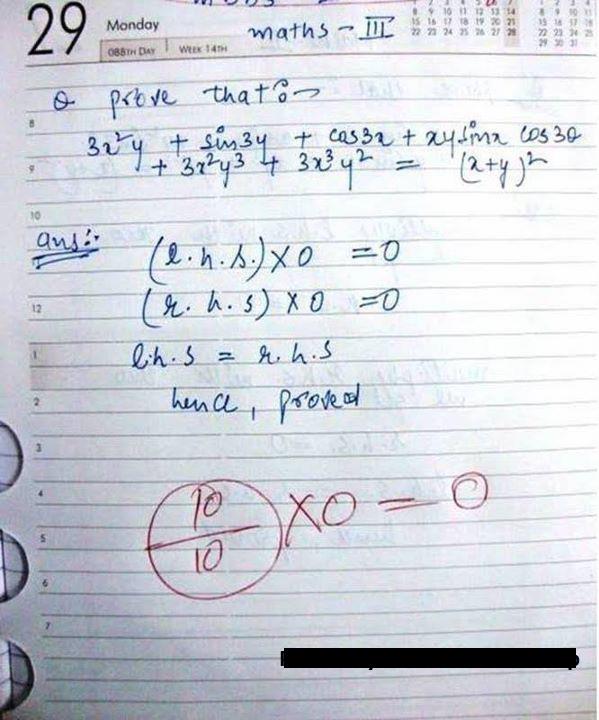 29 Monday
088TH DAY WEEK 14TH
maths - III
8 9 10 11 12 13 14
15 16 17 18 19 20 21
22 23 24 25 26 27 28
15 16 17 18 19 20 21
22 23 24 25 26 27 28
29 30 31
Q prove that :→
8
3x²y + sin3y + cos3x + xysinx cos3θ
9
+ 3x²y³ + 3x³y² = (x+y)²
10
ans:-
(l.h.s.)×0 =0
12
(r.h.s)×0 =0
1
l.h.s = r.h.s
2
hence, proved
3
4
10/10 ×0 = 0
5
6
7